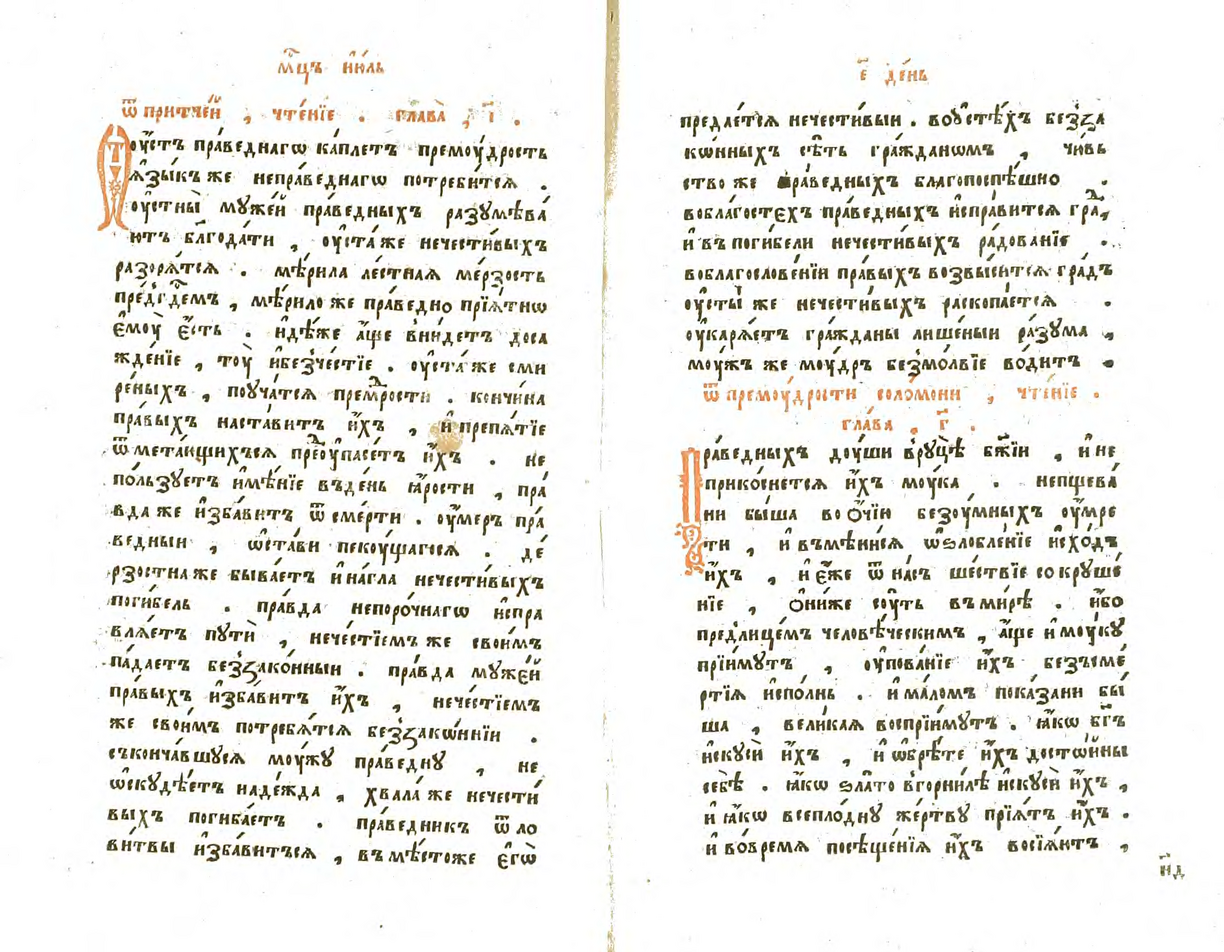 мⷭ҇цъ и҆ю́ль
ѿ при́тчей , чте́нїе . глава̀ , і҃ .
Оу҆стъ пра́веднагѡ ка́плетъ премоу́дрость
ꙗ҆зы́къ же непра́веднагѡ потреби́тсѧ .
оу҆стны̀ муже́й пра́ведныхъ разꙋмѣва́
ютъ блгⷣода́ти , оу҆ста́ же нечести́выхъ
разорѧ́тсѧ . мѣ́рила ле́стнаѧ ме́рзость
пред̾гдⷭ҇емъ , мѣ́рило же пра́ведно прїѧ́тнѡ
є҆моу̀ є҆́сть . и҆дѣ́же а҆́ще вни́детъ доса
жде́нїе , тоу̀ и҆безче́стїе . оу҆ста́ же сми
ре́ныхъ , поуча́тсѧ премⷣрости . кончи́на
пра́выхъ наста́витъ и҆̀хъ , и҆ препѧ́тїе
ѿмета́ющихъсѧ преоⷣупасе́тъ и҆̀хъ . не
по́льзуетъ и҆мѣ́нїе въде́нь ꙗ҆́рости , пра́
вда же и҆зба́витъ ѿ сме́рти . оу҆ме́ръ пра́
ведныи , ѡ҆ста́ви пекоу́щагосѧ . де́
рзостна же быва́етъ и҆ на́гла нечести́выхъ
поги́бель . пра́вда непоро́чнагѡ и҆спра
влѧ́етъ пути̑ , нечестїемъ же свои́мъ
па́даетъ без̾зако́нныи . пра́вда муже́й
пра́выхъ и҆зба́витъ и҆̀хъ , нече́стїемъ
же свои́мъ потребѧ́тсѧ без̾зако́ннїи .
съконча́вшусѧ моу́жу пра́ведну , не
ѡ҆скудѣ́етъ наде́жда , хвала́ же нечести́
выхъ погиба́етъ . пра́ведникъ ѿ ло
ви́твы и҆зба́витъсѧ , въ мѣ́стоже є҆гѡ̀
є҃ де́нь
предае́тсѧ нечести́выи . воꙋстѣ́хъ без̾за
ко́нныхъ сѣ́ть гра́жданѡмъ , чи́вь
ство же пра́ведныхъ благопоспѣ́шно .
воблагостєхъ пра́ведныхъ и҆спра́витсѧ граⷣ,
и҆ въ поги́бели нечести́выхъ ра́дованїе .
воблагослове́нїи пра́выхъ возвы́ситсѧ гра́дъ
оу҆сты̀ же нечести́выхъ раскопа́етсѧ .
оу҆карѧ́етъ гра́жданы лише́ныи ра́зума ,
моу́жъ же моу́дръ безмо́лвїе во́дитъ .
ѿ премоу́дрости соло́мони , чте́нїе .
глава̀ , г҃ .
Пра́ведныхъ до́уши вруцѣ̀ бжⷤїи , и҆ не
прико́снетсѧ и҆́хъ моу́ка . непщева́
ни бы́ша во о҆́чїи безоу́мныхъ оу҆мре́
ти , и҆ въмѣни́сѧ ѡ҆ѕлобле́нїе и҆схо́дъ
и҆́хъ , и҆ є҆́же ѿ на́съ ше́ствїе сокруше́
нїе , о҆ни́же соу́ть въ ми́рѣ . и҆́бо
пред̾лице́мъ человѣ́ческимъ , а҆́ще и҆ моу́ку
прїи́мутъ , оу҆пова́нїе и҆́хъ безъсме́
ртїѧ и҆спо́лнь . и҆ ма́ломъ пока́зани бы́
ша , вели́каѧ воспрїи́мутъ . ꙗ҆́кѡ бг҃ъ
и҆скусѝ и҆́хъ , и҆ ѡ҆брѣ́те и҆́хъ досто́йны
себѣ̀ . ꙗ҆́кѡ ѕла́то вгорни́лѣ и҆скусѝ и҆́хъ ,
и҆ ꙗ҆́кѡ всепло́дну же́ртву прїѧ́тъ и҆́хъ .
и҆ во́времѧ посѣще́нїѧ и҆́хъ восїѧ́ютъ ,
н҃д